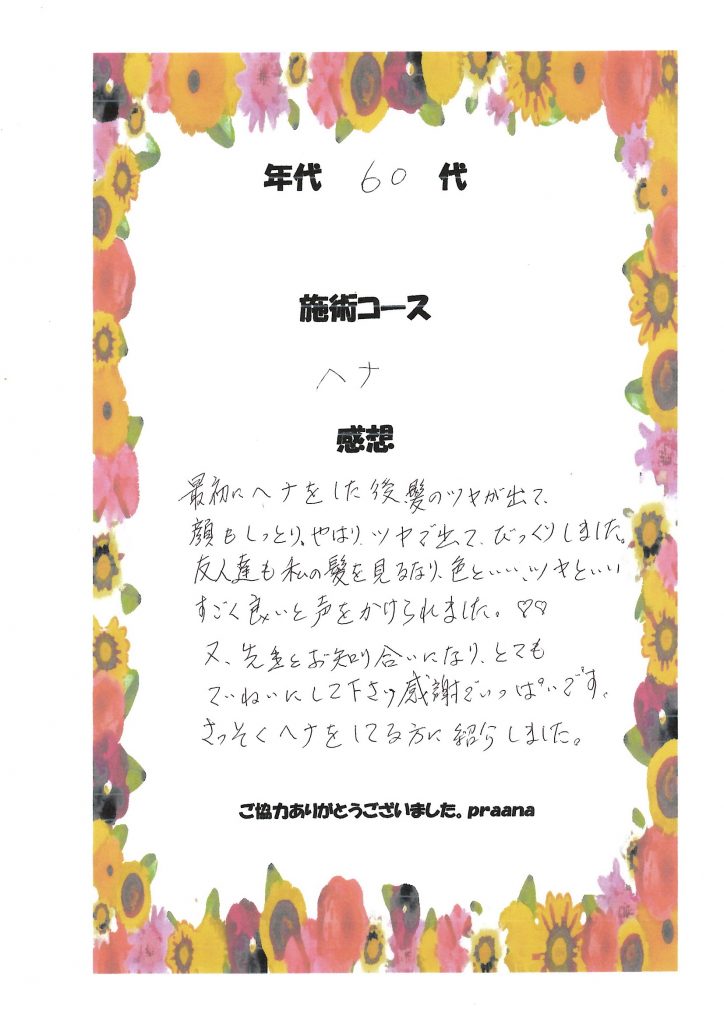 年代 60 代
施術コース
ヘナ
感想
最初にヘナをした後髪のツヤが出て、
顔もしっとり。やはり、ツヤで出て、びっくりしました。
友人達も私の髪を見るなり、色といい、ツヤといい
すごく良いと声をかけられました。♡♡
又、先生とお知り合いになり、とても
ていねいにして下さり感謝でいっぱいです。
さっそくヘナをしてる方に紹介しました。
ご協力ありがとうございました。praana